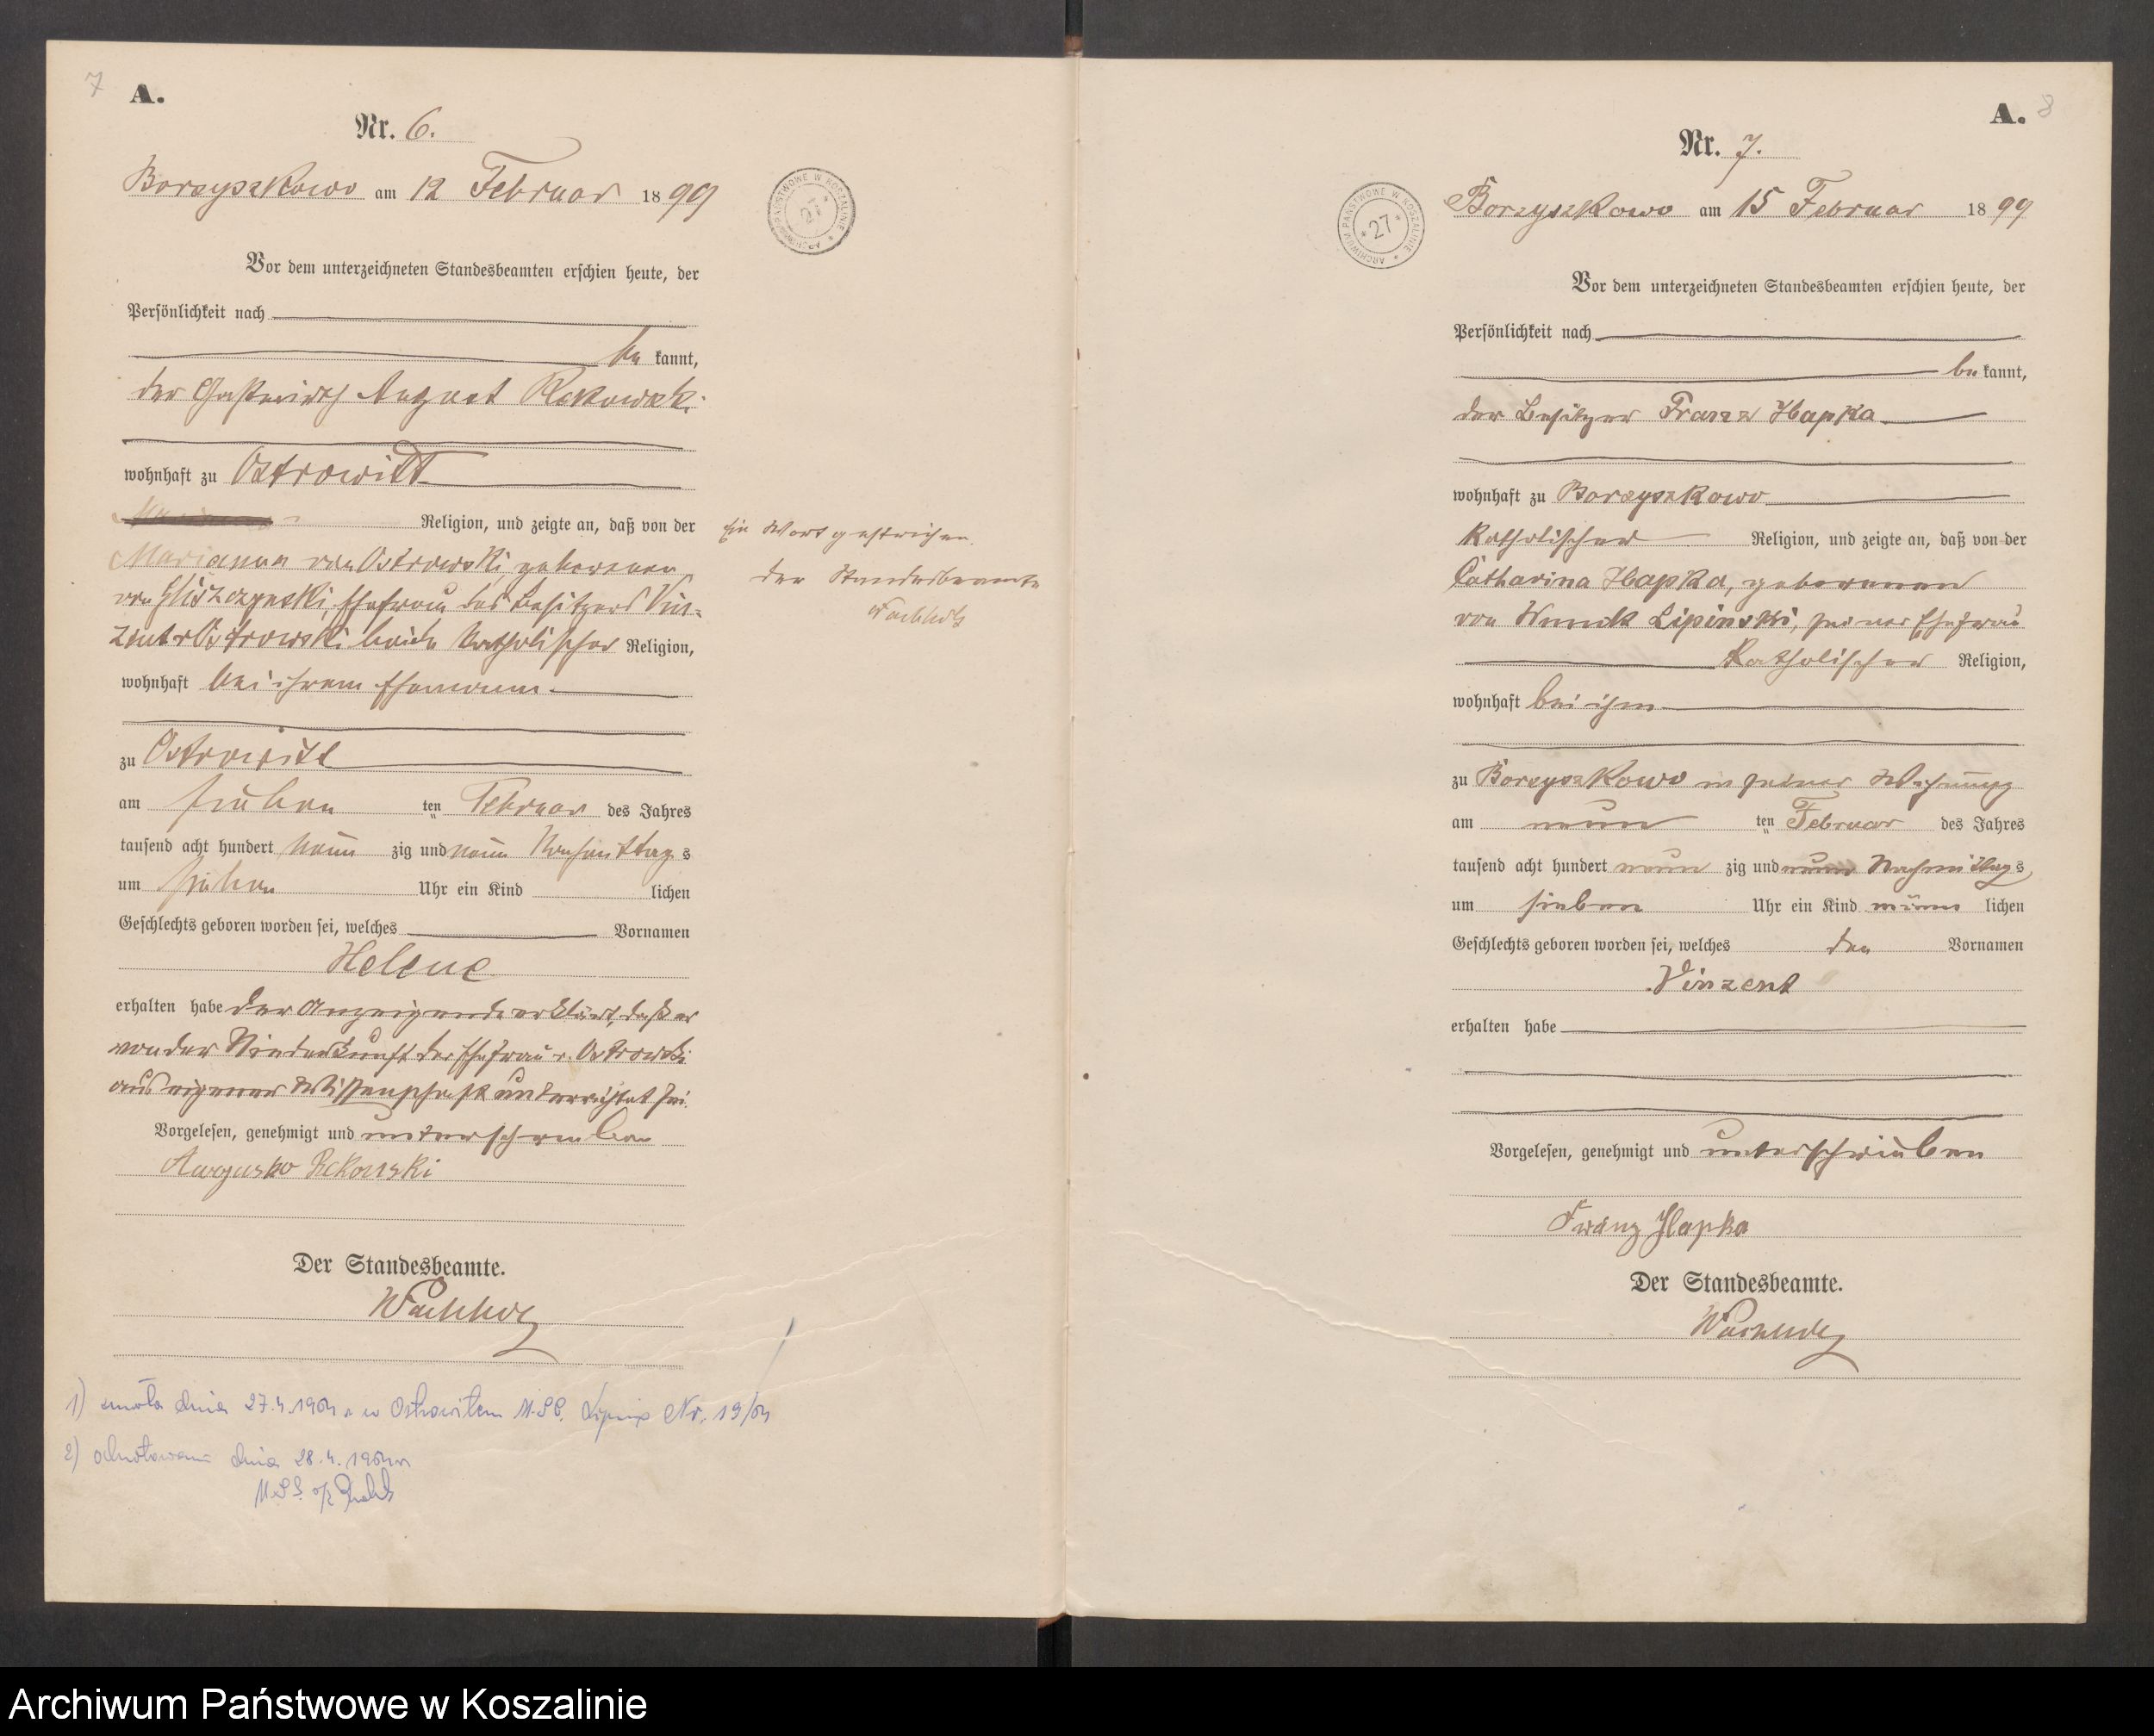 7
A.
Nr. 6.
Borzyszkowo am 12 Februar 1899
Vor dem unterzeichneten Standesbeamten erschien heute, der
Persönlichkeit nach
be kannt,
der Gastwirth August Rekowski
wohnhaft zu Ostrowitt
Religion, und zeigte an, daß von der
Marianna von Ostrowski, geborenen
von Gliszczynski, Ehefrau des Besitzers Vin-
zent v Ostrowski beide katholischer Religion,
wohnhaft bei ihrem Ehemann
zu Ostrowitt
am sieben ten Februar des Jahres
tausend acht hundert neun zig und neun Nachmittag s
um sieben Uhr ein Kind lichen
Geschlechts geboren worden sei, welches Vornamen
Helene
erhalten habe der Anzeigende erklärt, daß er
von der Niederkunft der Ehefrau v. Ostrowski
aus eigener Wissenschaft unterrichtet sei.
Vorgelesen, genehmigt und unterschrieben
Rekowski
Der Standesbeamte.
Wachholz
Ein Wort gestrichen.
Der Standesbeamte
Wachholz
ARCHIWUM PAŃSTWOWE W KOSZALINIE
27
1) zmarła dnia 27.4.1964 r w Ostrowitem U.S.C. Lipnica Nr. 19/64
2) odnotowano dnia 28.4.1964 r
8
A.
Nr. 7.
ARCHIWUM PAŃSTWOWE W KOSZALINIE
* 27 *
Borzyszkowo am 15 Februar 1899
Vor dem unterzeichneten Standesbeamten erschien heute, der
Persönlichkeit nach
be kannt,
der Besitzer Franz Hapka
wohnhaft zu Borzyszkowo
katholischer Religion, und zeigte an, daß von der
Catharina Hapka, geborenen
von Lipinski, seiner Ehefrau
katholischer Religion,
wohnhaft bei ihm
zu Borzyszkowo in seiner Wohnung
am neun ten Februar des Jahres
tausend acht hundert neun zig und neun Nachmittag s
um sieben Uhr ein Kind männ lichen
Geschlechts geboren worden sei, welches den Vornamen
Vinzent
erhalten habe
Vorgelesen, genehmigt und unterschrieben
Franz Hapka
Der Standesbeamte.
Wachholz
Archiwum Państwowe w Koszalinie